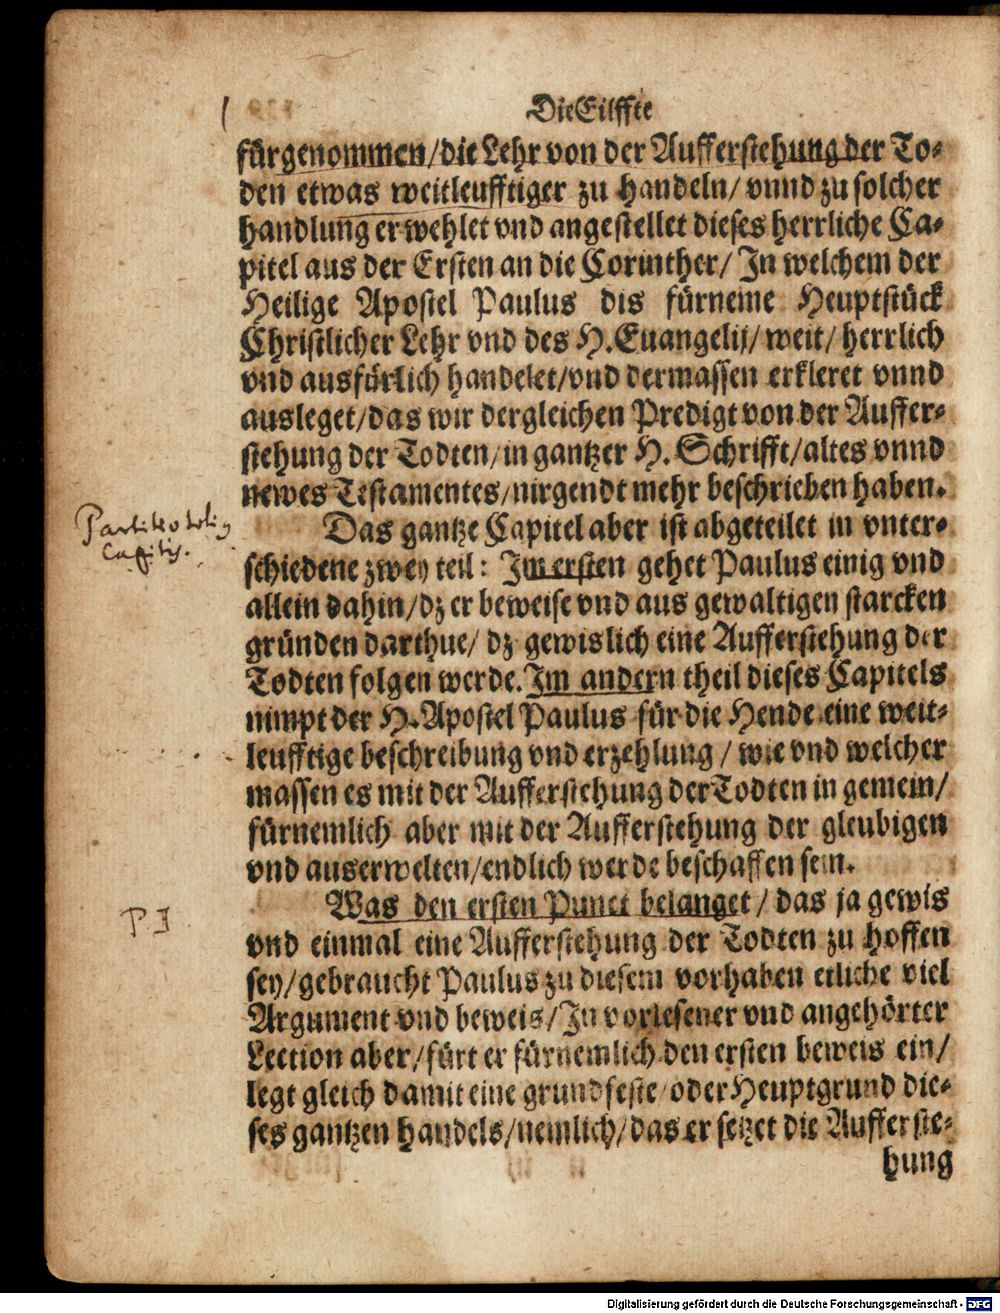 Die Eilffte
fürgenommen/die Lehr von der Aufferstehung der To-
den etwas weitleufftiger zu handeln/ vnnd zu solcher
handlung erwehlet vnd angestellet dieses herrliche Ca-
pitel aus der Ersten an die Corinther/ In welchem der
Heilige Apostel Paulus dis fürneme Heuptstück
Christlicher Lehr vnd des H. Euangelij/ weit/ herrlich
vnd ausfürlich handelet/vnd dermassen erkleret vnnd
ausleget/das wir dergleichen Predigt von der Auffer-
stehung der Todten/in gantzer H. Schrifft/altes vnnd
newes Testamentes/nirgendt mehr beschrieben haben.
Das gantze Capitel aber ist abgeteilet in vnter-
Capitis.
schiedene zwey teil: Im ersten gehet Paulus einig vnd
allein dahin/dz er beweise vnd aus gewaltigen starcken
gründen darthue/ dz gewislich eine Aufferstehung der
Todten folgen werde. Im andern theil dieses Capitels
nimpt der H. Apostel Paulus für die Hende eine weit-
leufftige beschreibung vnd erzehlung / wie vnd welcher
massen es mit der Aufferstehung der Todten in gemein/
fürnemlich aber mit der Aufferstehung der gleubigen
vnd auserwelten/endlich werde beschaffen sein.
Was den ersten Punct belanget / das ja gewis
vnd einmal eine Aufferstehung der Todten zu hoffen
sey/gebraucht Paulus zu diesem vorhaben etliche viel
Argument vnd beweis/In vorlesener vnd angehörter
Lection aber/fürt er fürnemlich den ersten beweis ein/
legt gleich damit eine grundfeste oder Heuptgrund die-
ses gantzen handels/nemlich/das er setzet die Aufferste-
hung
Digitalisierung gefördert durch die Deutsche Forschungsgemeinschaft - DFG